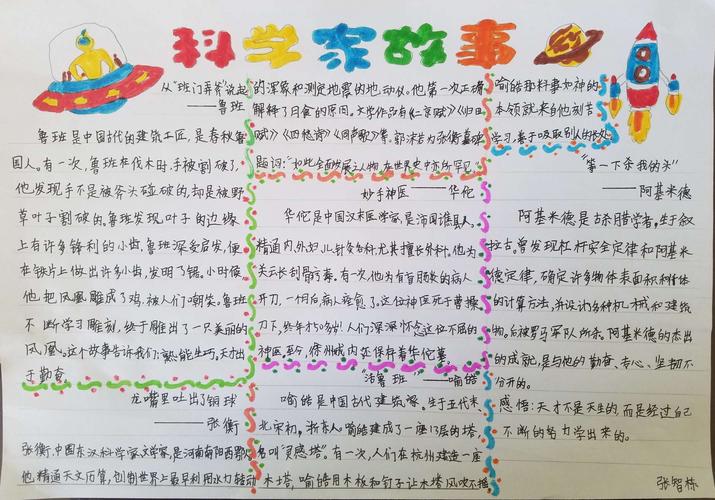 科学家故事
从“班门弄斧”说起
——鲁班
鲁班是中国古代的建筑工匠，是春秋鲁
国人。有一次，鲁班在伐木时，手被割破了，
他发现手不是被斧头碰破的，却是被野
草叶子割破的。鲁班发现叶子的边缘
上有许多锋利的小齿，鲁班深受启发，便
在铁片上做出许多小齿，发明了锯。小时候
他把凤凰雕成了鸡，被人们嘲笑。鲁班
不断学习雕刻，终于雕出了一只美丽的
凤凰。这个故事告诉我们：熟能生巧，天才出
于勤奋。
龙嘴里吐出了铜球
——张衡
张衡，中国东汉科学家文学家，是河南南阳西鄂人
他精通天文历算，创制世界上最早利用水力转动
的浑象和测定地震的地动仪。他第一次正确
解释了月食的原因。文学作品有《二京赋》《归田
赋》《四愁诗》《同声歌》等。郭沫若为张衡墓碑
题词：“如此全面发展之人物，在世界史中亦所罕见
妙手神医——华佗
华佗是中国汉末医学家，是沛国谯县人。
精通内、外、妇、儿、针灸各科，尤其擅长外科。他为
关云长刮骨疗毒。有一次，他为有盲肠炎的病人
开刀，一个月后病痊愈了。这位神医死于曹操
刀下，终年才50多岁！人们深深怀念这位不屈的
神医，至今，徐州城内还保存着华佗墓。
“活鲁班”——喻皓
喻皓是中国古代建筑家。生于五代末
北宋初，浙东人。喻皓建成了一座13层的塔，
名叫“灵感塔”。有一次，人们在杭州建造一座
木塔，喻皓用木板和钉子让木塔风吹不摇
喻皓那料事如神的
本领就来自他刻苦
学习，善于吸取别人的长处。
“等一下杀我的头”
——阿基米德
阿基米德是古希腊学者，生于叙
拉古。曾发现杠杆安全定律和阿基米
德定律，确定许多物体表面积和体
的计算方法，并设计多种机械和建筑
物。后被罗马军队所杀。阿基米德的杰出
的成就，是与他的勤奋、专心、坚韧不
分开的。
感悟：天才不是天生的，而是经过自己
不断的努力学出来的。
张智栋